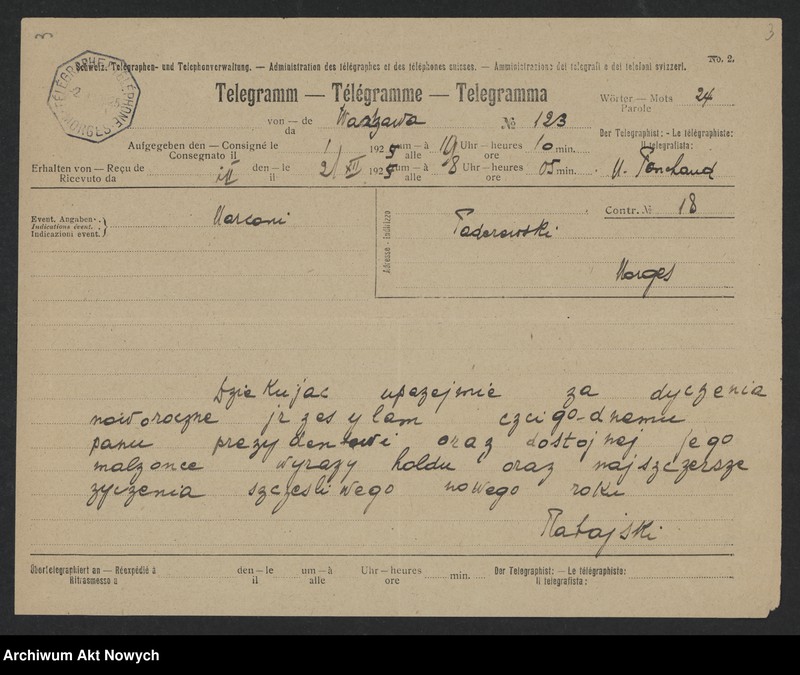 3
No. 2.
Schweiz. Telegraphen- und Telephonverwaltung. — Administration des télégraphes et des téléphones suisses. — Amministrazione dei telegrafi e dei telefoni svizzeri.
TÉLÉGRAPHE TÉLÉPHONE MORGES
Telegramm — Télégramme — Telegramma
Wörter — Mots 24
Parole
von — de Warzawa № 123
da
Der Telegraphist: - Le télégraphiste:
Il telegrafista:
Aufgegeben den — Consigné le 1/ 1925 um — à 19 Uhr — heures 10 min.
Consegnato il alle ore
Erhalten von — Reçu de den — le 2/ XII 1925 um — à 8 Uhr — heures 05 min.
Ricevuto da il alle ore
Contr. № 18
Event. Angaben.
Indications évent.
Indicazioni event.
Marconi
Adresse - Indirizzo
Paderewski
Morges
Dziekujac upezejmie za dyczenia
noworoczne jrzesylam czcigo-dnemu
panu prezydentowi oraz dostojnej jego
malzonce wyrazy holdu oraz najszczersze
zyczenia szczesliwego nowego roku
Ratajski
Übertelegraphiert an — Réexpédié à den — le um — à Uhr — heures min. Der Telegraphist: — Le télégraphiste:
Ritrasmesso a il alle ore Il telegrafista:
Archiwum Akt Nowych